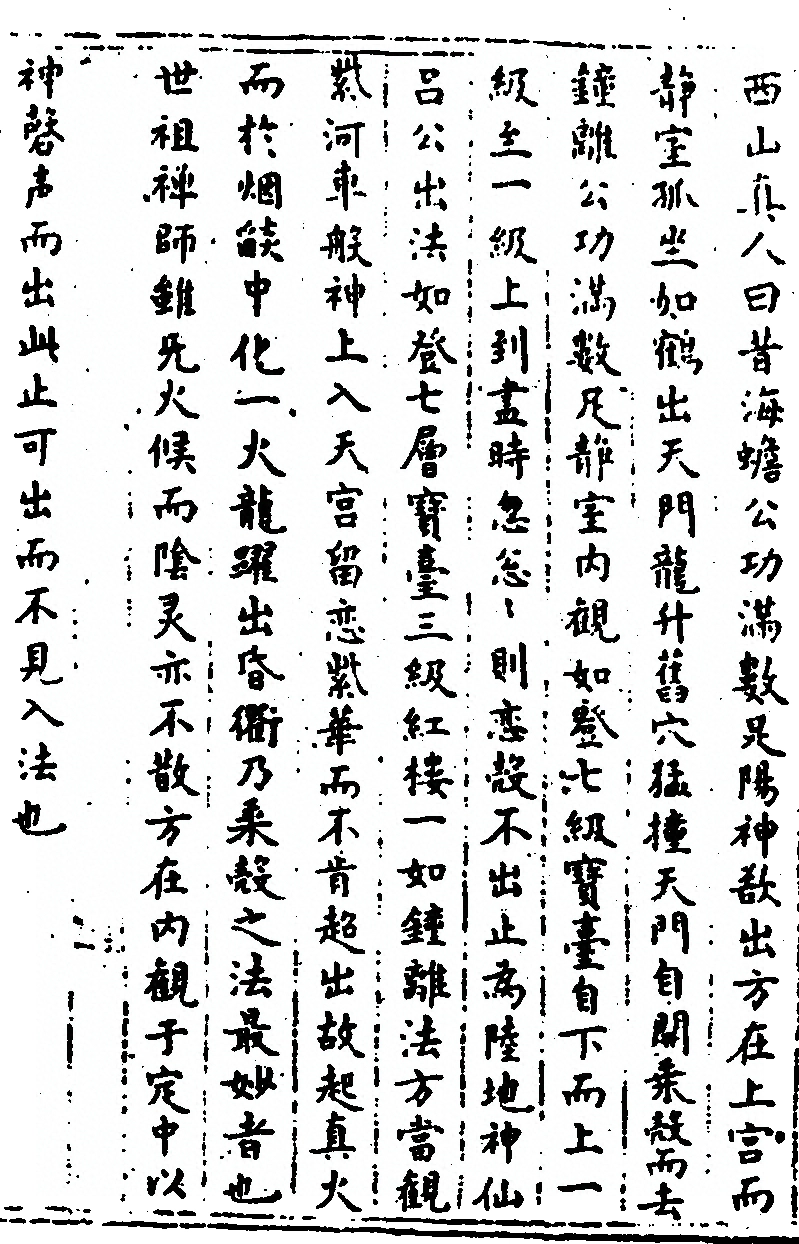 西山真人曰昔海蟾公功滿數足陽神欲出方在上宫而
静室孤坐如鶴出天門龍升舊穴猛撞天門自開乗殻而去
鐘離公功滿數足静室内觀如登七級寶臺自下而上一
級至一級上到盡時忽忩〻則恋殻不出止為陸地神仙
吕公出法如登七層寶臺三級紅樓一如鐘離法方當觀
紫河車般神上入天宫留恋紫華而不肯超出故起真火
而於烟燄中化一火龍躍出昏衢乃乗殻之法最妙者也
世祖禅師雖旡火候而陰灵亦不散方在内觀于定中以
神磬声而出此止可出而不見入法也